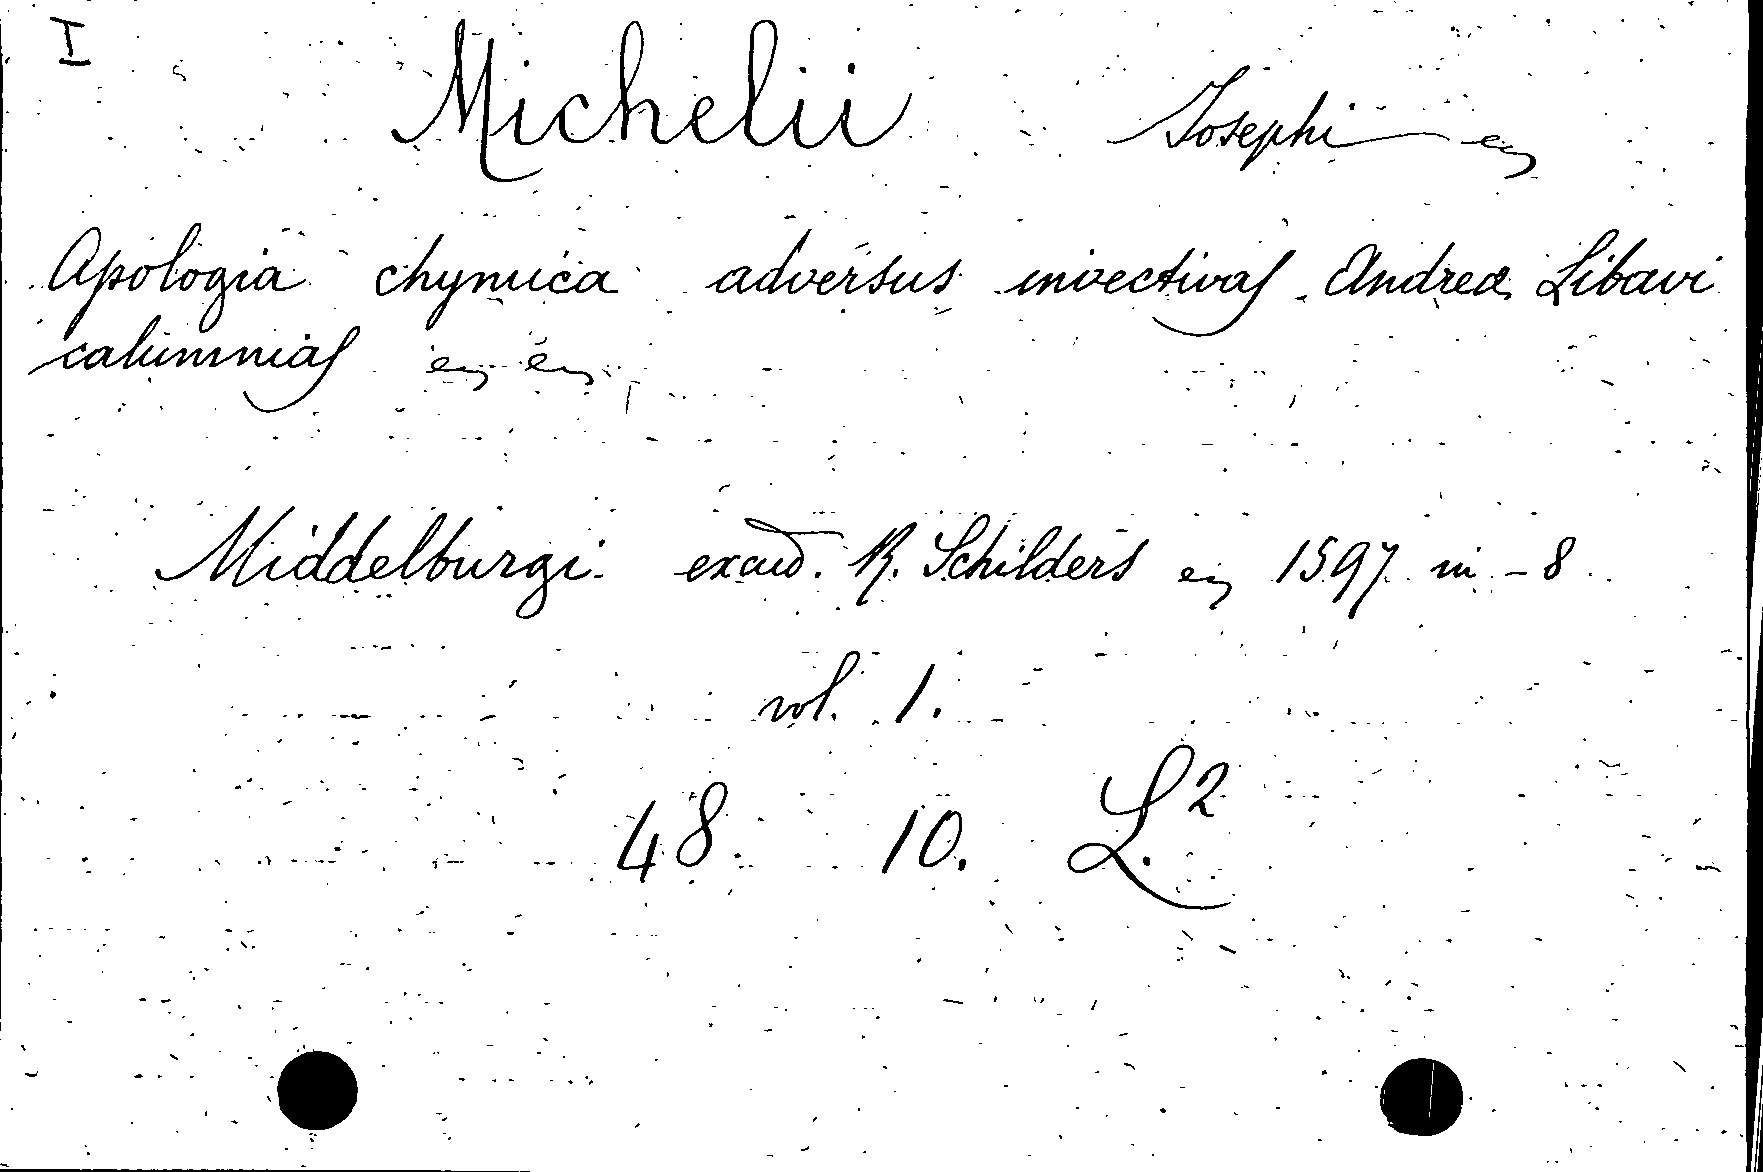 I
Michelii Josephi eꝫ
Apologia chymica adversus invectivas Andreæ Libavi
calumnias eꝫ eꝫ
Middelburgi excud. R. Schilders eꝫ 1597 in-8
vol. 1.
48 10. L.2